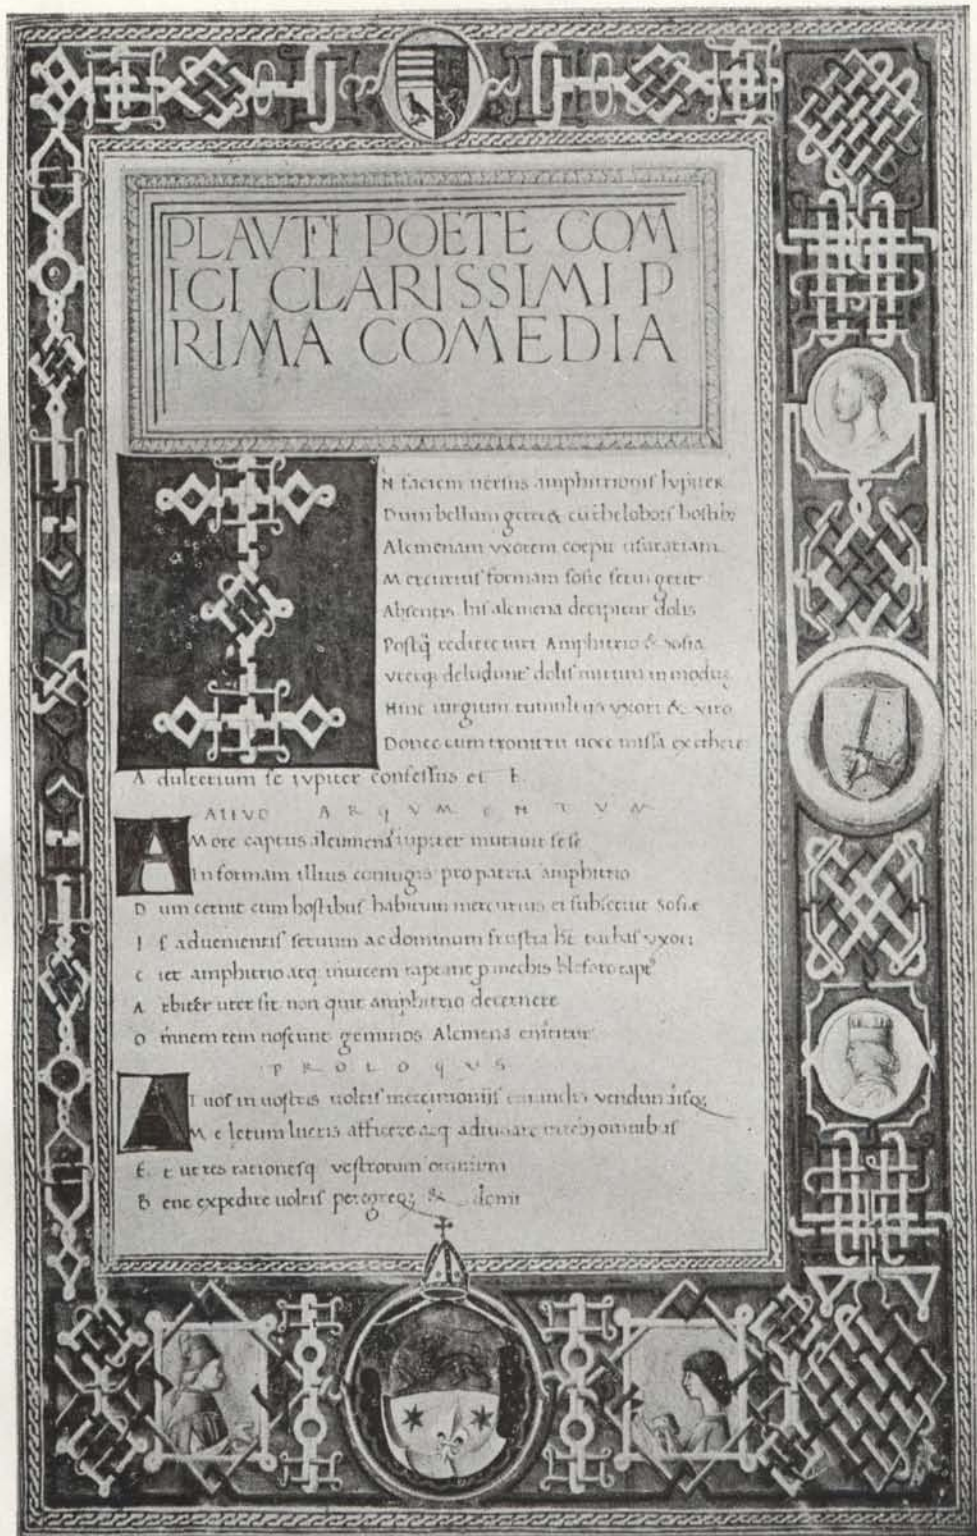 PLAVTI POETE COM
ICI CLARISSIMI P
RIMA COMEDIA
N faciem uersus amphitrionis Iupiter
Dum bellum gereret cum thelobois hostibȝ
Alcmenam vxorem coepit usurariam
Mercurius formam sosie serui gerit
Absentis his alcmena decipitur dolis
Postq̃ rediere uiri Amphitrio & sosia
vterqȝ deludunt dolis mirum in modũ
Hinc iurgium tumultus vxori & viro
Donec cum tronitru uoce missa ex ethere
A dulterium se iupiter confessus est
ARQVMENTVM
More captus alcumenas iupiter mutauit sese
In formam illius coniugis pro patria amphitrio
D um cernit cum hostibus habitum mercurius ei subseruit Sosiæ
I s aduenientis seruum ac dominum frustra hẽt turbas vxori
C iet amphitrio atq inuicem raptant p mechis
A rbiter uter sit non quit amphitrio decernere
O mnem rem noscunt geminos Alcmena enititur
PROLOQVS
T uos in uostris uoltis mercimoniis emundis vendundisqȝ
Me letum lucris afficere atq adiuuare in rebȝ omnibus
E t ut res rationesq vestrorum omnium
B ene expedire uoltis peregreqȝ & domi